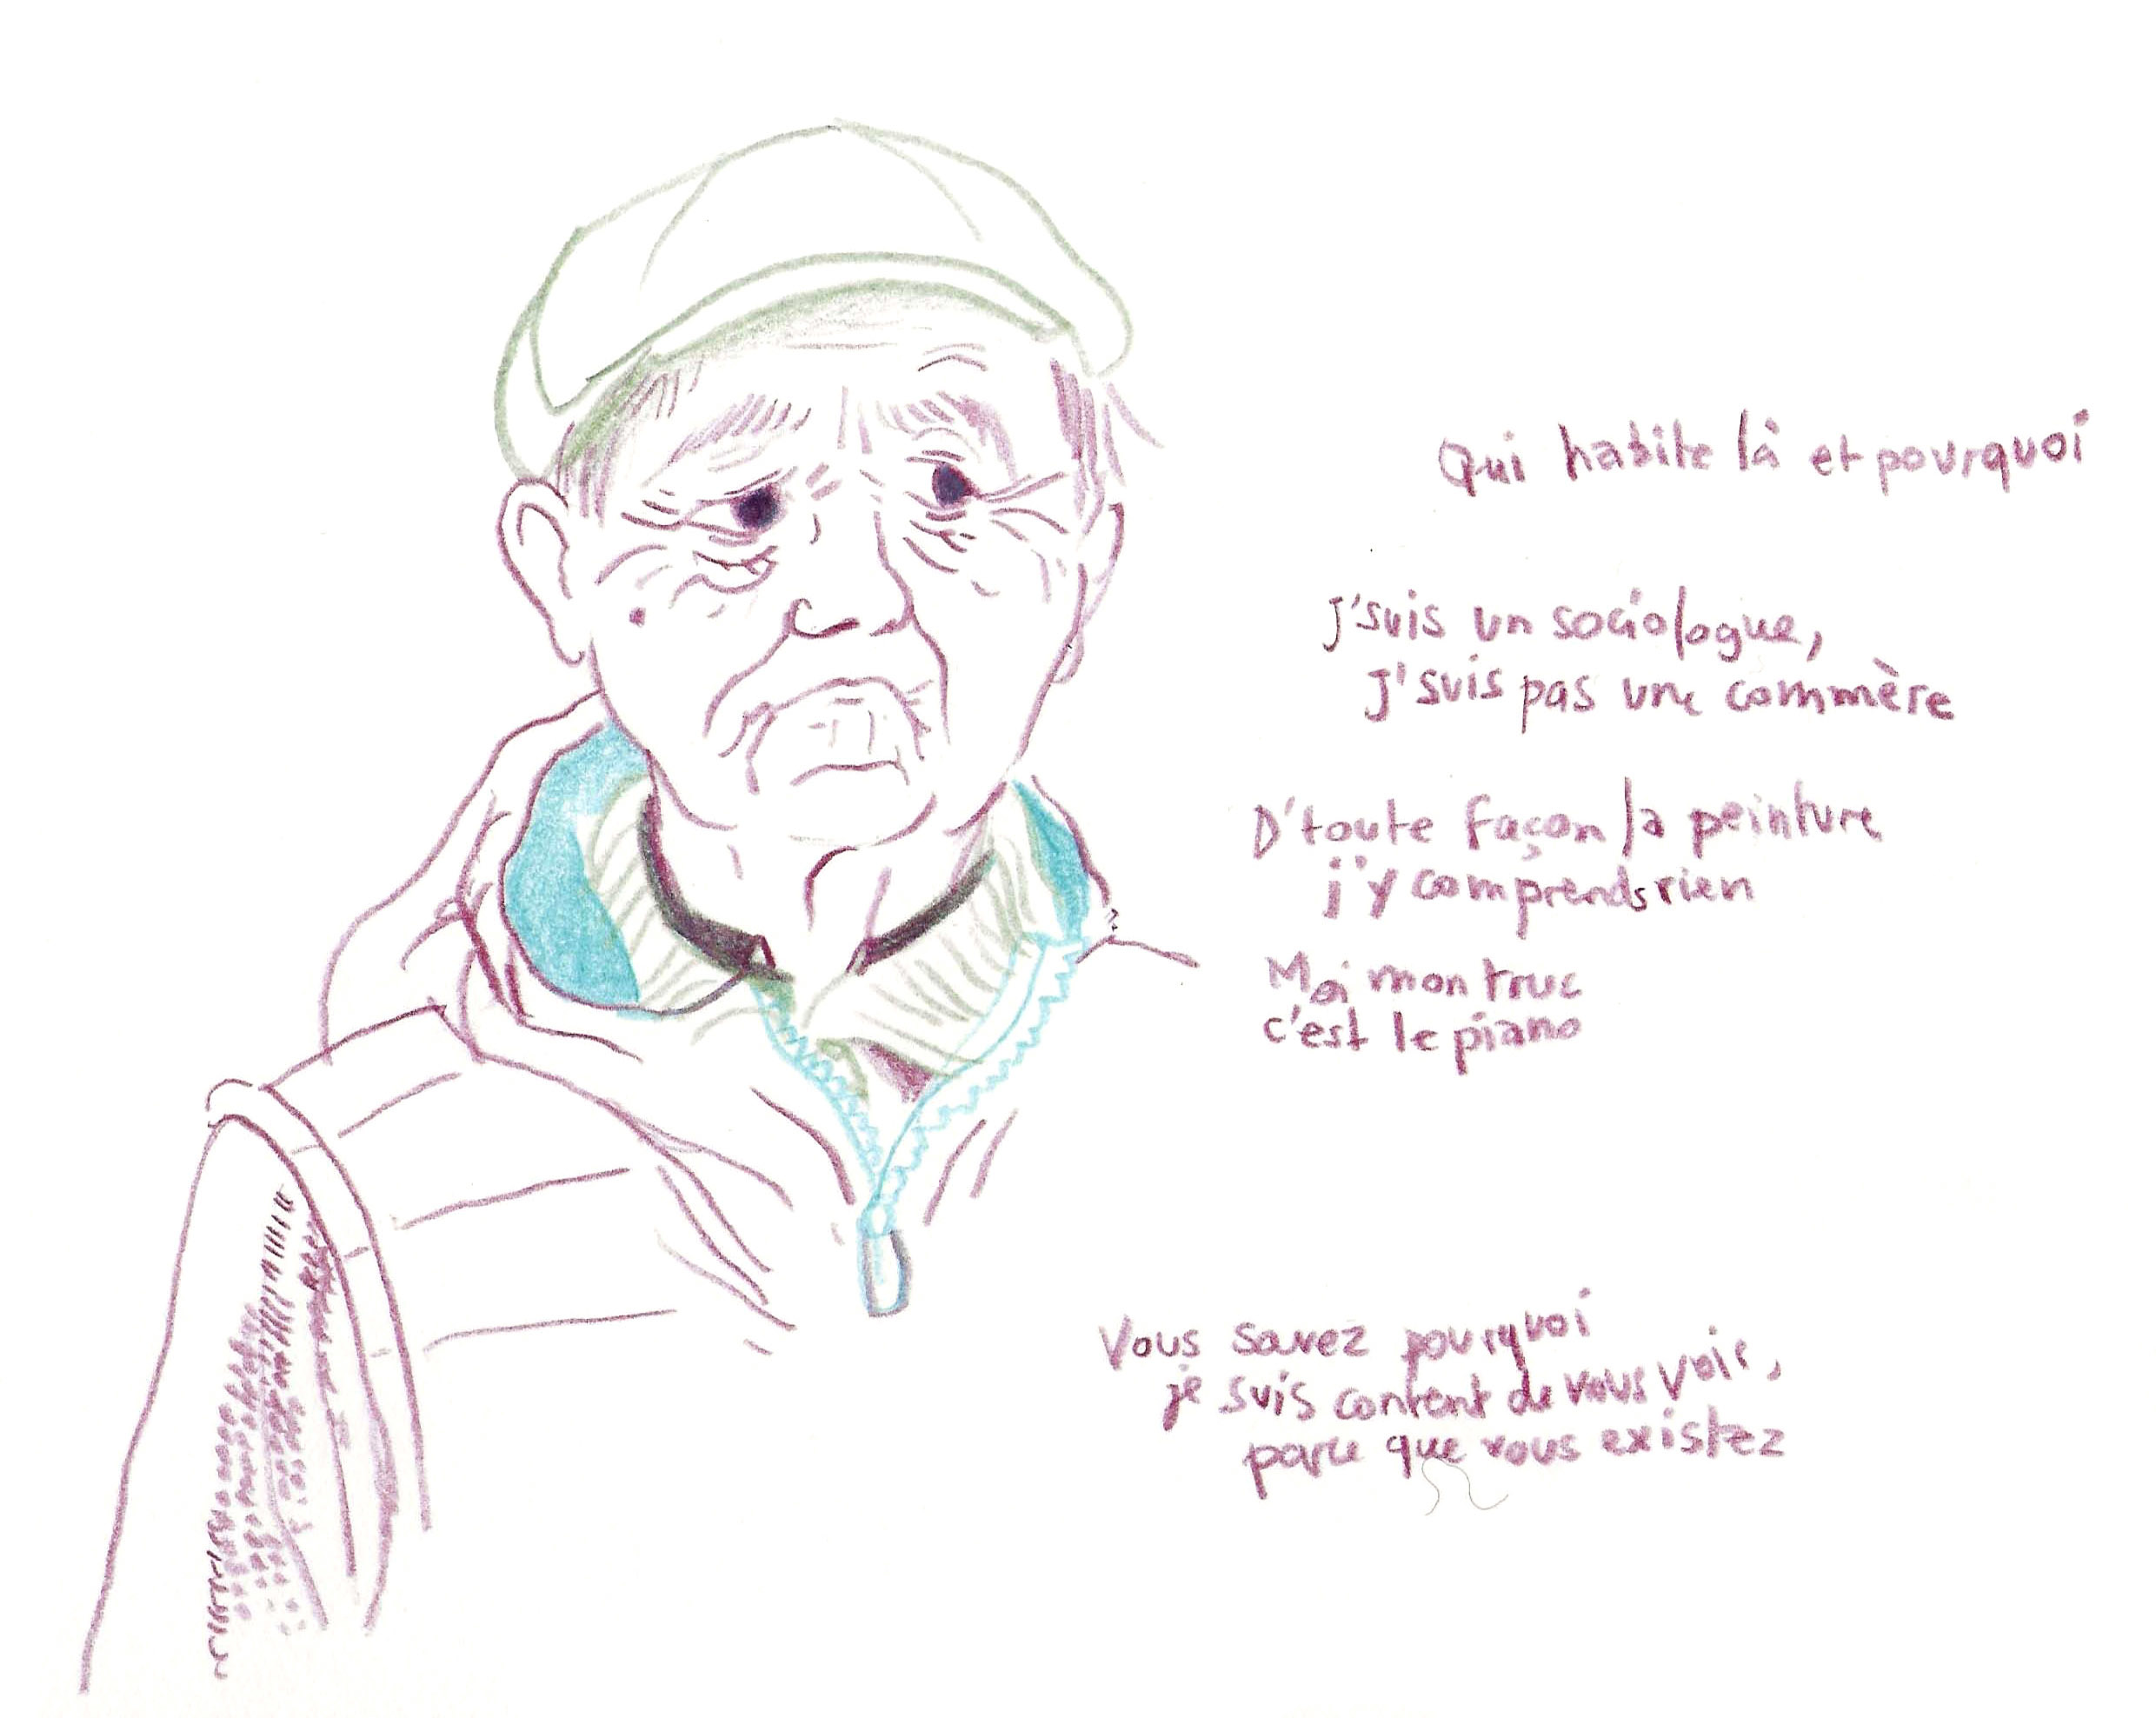 Qui habite là et pourquoi
J'suis un sociologue,
J'suis pas une commère
D'toute façon la peinture
j'y comprends rien
Moi mon truc
c'est le piano
Vous savez pourquoi
je suis content de vous voir,
parce que vous existez